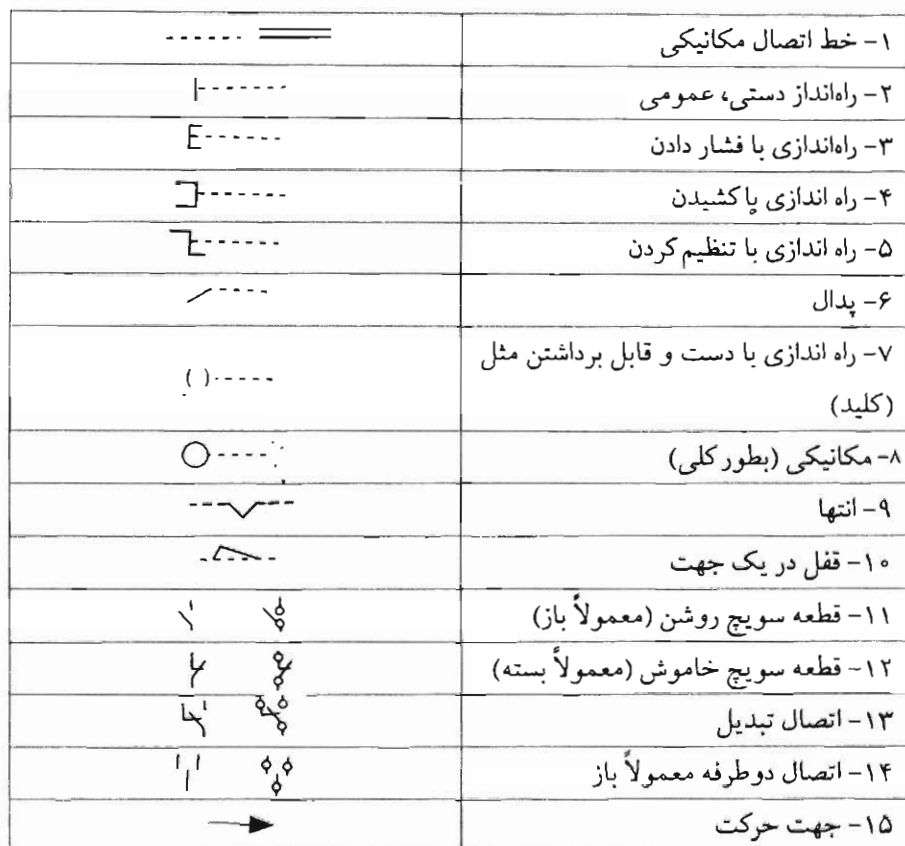 ۱- خط اتصال مکانیکی
۲- راه‌انداز دستی، عمومی
۳- راه‌اندازی با فشار دادن
۴- راه اندازی پاکشیدن
۵- راه اندازی با تنظیم کردن
۶- پدال
۷- راه اندازی با دست و قابل برداشتن مثل
(کلید)
۸- مکانیکی (بطور کلی)
۹- انتها
۱۰- قفل در یک جهت
۱۱- قطعه سویچ روشن (معمولاً باز)
۱۲- قطعه سویچ خاموش (معمولاً بسته)
۱۳- اتصال تبدیل
۱۴- اتصال دوطرفه معمولاً باز
۱۵- جهت حرکت